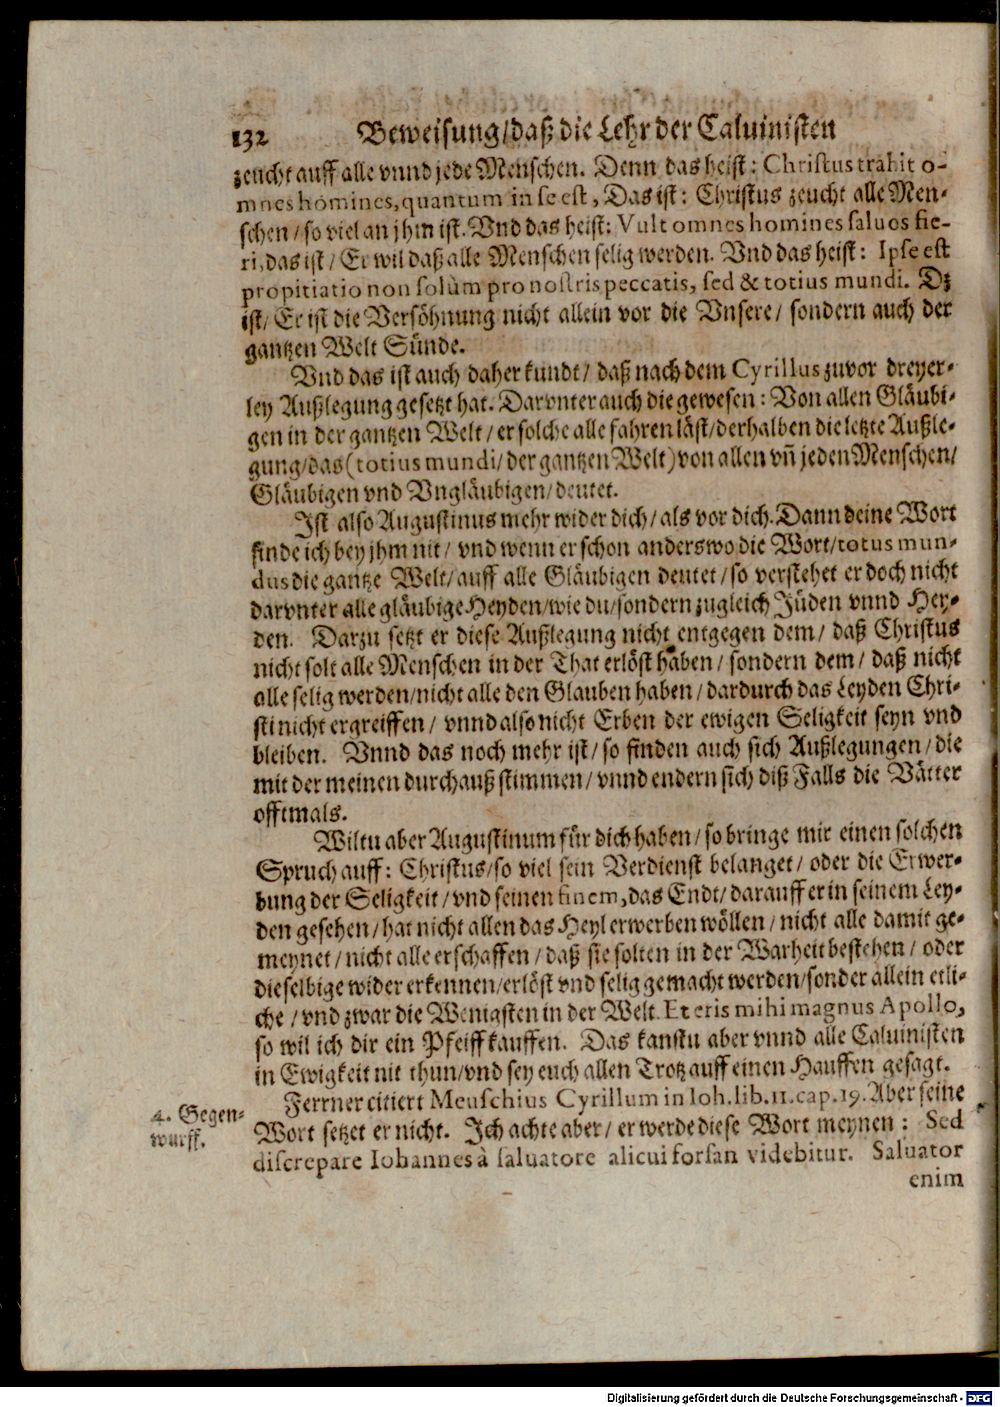 132 Beweisung/daß die Lehr der Caluinisten
zeucht auff alle vnnd jede Menschen. Denn das heist: Christus trahit o-
mnes homines, quantum in se est, Das ist: Christus zeucht alle Men-
schen/so viel an jhm ist. Vnd das heist: Vult omnes homines saluos fie-
ri, das ist/ Er wil daß alle Menschen selig werden. Vnd das heist: Ipse est
propitiatio non solùm pro nostris peccatis, sed & totius mundi. Dz
ist/ Er ist die Versöhnung nicht allein vor die Vnsere/ sondern auch der
gantzen Welt Sünde.
Vnd das ist auch daher kundt/ daß nach dem Cyrillus zuvor dreyer-
ley Außlegung gesetzt hat. Darvnter auch die gewesen: Von allen Gläubi-
gen in der gantzen Welt/ er solche alle fahren läst/derhalben die letzte Außle-
gung/das (totius mundi/ der gantzen Welt) von allen vn̄ jeden Menschen/
Gläubigen vnd Vngläubigen/deutet.
Ist also Augustinus mehr wider dich/ als vor dich. Dann deine Wort
finde ich bey jhm nit/ vnd wenn er schon anderswo die Wort/totus mun-
dus die gantze Welt/auff alle Gläubigen deutet/so verstehet er doch nicht
darvnter alle gläubige Heyden/wie du/sondern zugleich Jüden vnnd Hey-
den. Darzu setzt er diese Außlegung nicht entgegen dem/ daß Christus
nicht solt alle Menschen in der That erlöst haben/ sondern dem/ daß nicht
alle selig werden/nicht alle den Glauben haben/ dardurch das Leyden Chri-
sti nicht ergreiffen/ vnnd also nicht Erben der ewigen Seligkeit seyn vnd
bleiben. Vnnd das noch mehr ist/so finden auch sich Außlegungen/die
mit der meinen durchauß stimmen/vnnd endern sich diß Falls die Vätter
offtmals.
Wiltu aber Augustinum für dich haben/so bringe mir einen solchen
Spruch auff: Christus/so viel sein Verdienst belanget/ oder die Erwer-
bung der Seligkeit/vnd seinen finem, das Endt/darauff er in seinem Ley-
den gesehen/hat nicht allen das Heyl erwerben wöllen/nicht alle damit ge-
meynet/nicht alle erschaffen/daß sie solten in der Warheit bestehen/ oder
dieselbige wider erkennen/erlöst vnd selig gemacht werden/sonder allein etli-
che/vnd zwar die Wenigsten in der Welt. Et eris mihi magnus Apollo,
so wil ich dir ein Pfeiff kauffen. Das kanstu aber vnnd alle Caluinisten
in Ewigkeit nit thun/vnd sey euch allen Trotz auff einen Hauffen gesagt.
4. Gegen-
wurff.
Ferrner citiert Meuschius Cyrillum in Ioh. lib. 11. cap. 19. Aber seine
Wort setzet er nicht. Ich achte aber/ er werde diese Wort meynen: Sed
discrepare Iohannes à saluatore alicui forsan videbitur. Saluator
enim
Digitalisierung gefördert durch die Deutsche Forschungsgemeinschaft - DFG